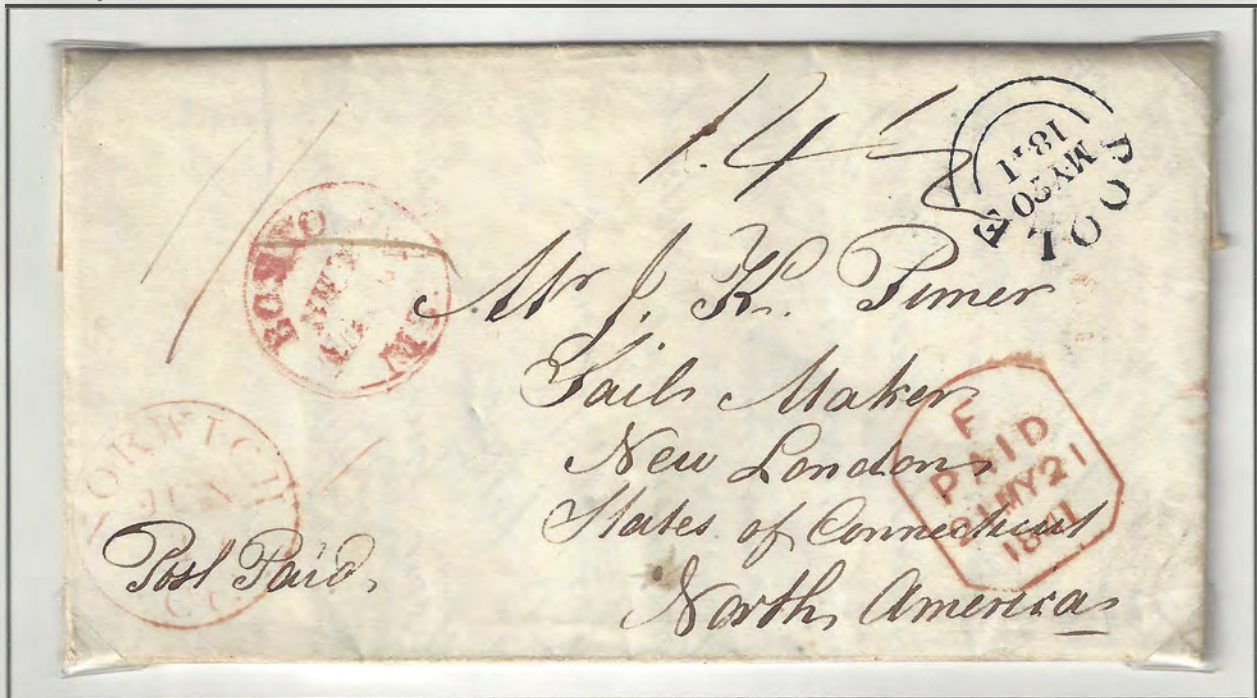 1/
14½
POOLE
MY20
1841
BOSTON
Mr J. K. Pimer
Sails Maker
New London
States of Connecticut
North America
F
PAID
21MY21
1841
NORWICH
JUN
CO
Post Paid